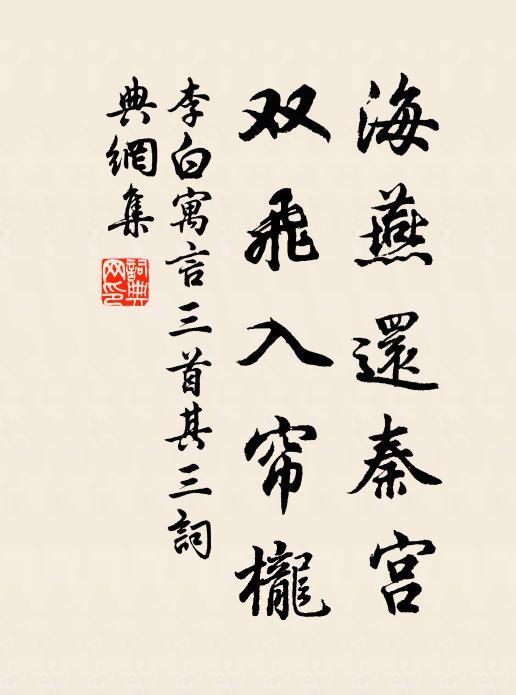 海燕還秦宫
双飛入帘櫳
李白寓言三首其三詞
典網集
詞典网印